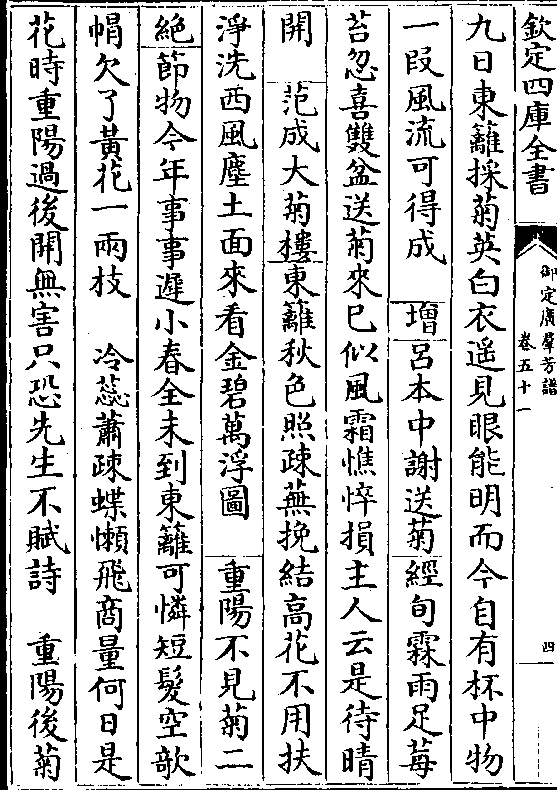 欽定四庫全書
御定廣羣芳譜
卷五十一
四
九日東籬採菊英白衣遥見眼能明而今自有杯中物
一段風流可得成 增呂本中謝送菊經旬霖雨足莓
苔忽喜雙盆送菊來已似風霜憔悴損主人云是待晴
開 范成大菊樓東籬秋色照疎蕪挽結高花不用扶
淨洗西風塵土面來看金碧萬浮圖 重陽不見菊二
絶節物今年事事遲小春全未到東籬可憐短髮空欹
帽欠了黃花一兩枝 冷蕊蕭疎蝶懶飛商量何日是
花時重陽過後開無害只恐先生不賦詩 重陽後菊